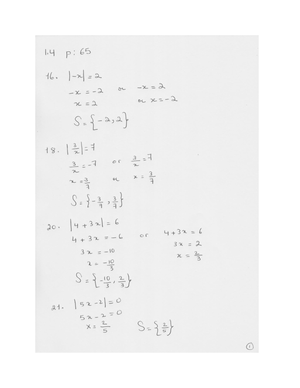 1.4 p: 65
16. |-x| = 2
-x = -2 or -x = 2
x = 2 or x = -2
S = {-2, 2}
18. |3/x| = 7
3/x = -7 or 3/x = 7
x = 3/7 or x = 3/7
S = {-3/7, 3/7}
20. |4 + 3x| = 6
4 + 3x = -6 or 4 + 3x = 6
3x = -10 3x = 2
x = -10/3 x = 2/3
S = {-10/3, 2/3}
21. |5x - 2| = 0
5x - 2 = 0
x = 2/5 S = {2/5}
1